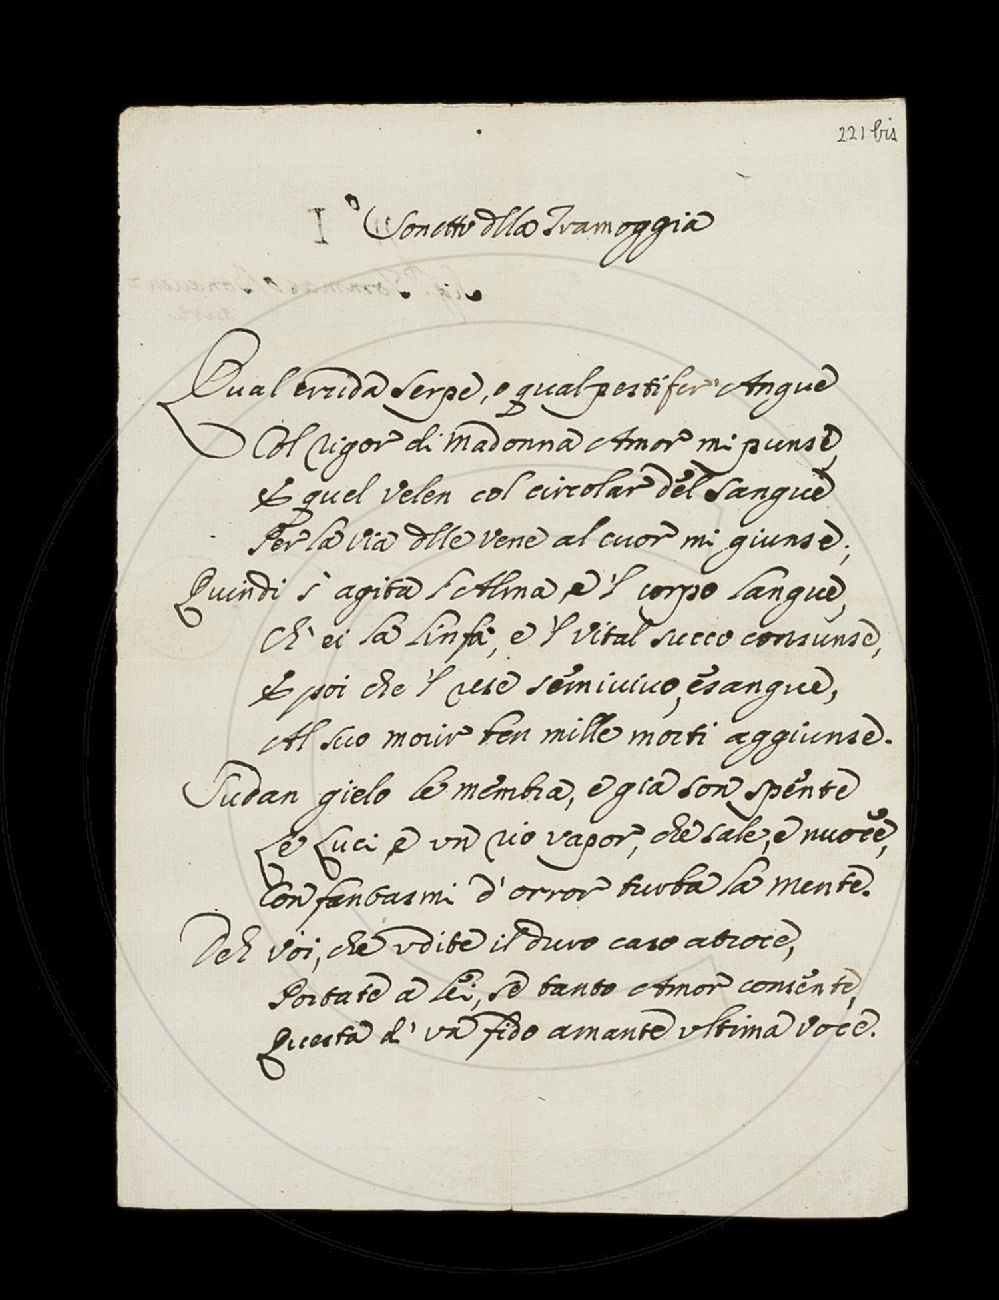 221 bis
I° Sonetto dlla Tramoggia
Qual cruda Serpe, o qual pestifer' Angue
Col rigor di Madonna Amor mi punse,
E quel velen col circolar del Sangue
Per la via dlle vene al cuor mi giunse;
Quindi s' agita l' Alma, e 'l corpo langue,
Ch' ei la linfa, e 'l vital succo consunse,
E poi che 'l rese semivivo, esangue,
Al suo morir ben mille morti aggiunse.
Sudan gielo le membra, e già son spente
Le Luci, e un rio vapor, che sale, e nuoce,
Con fantasmi d' orror turba la mente.
Deh voi, che udite il duro caso atroce,
Portate a lei, se tanto Amor consente,
Questa d' un fido amante ultima voce.